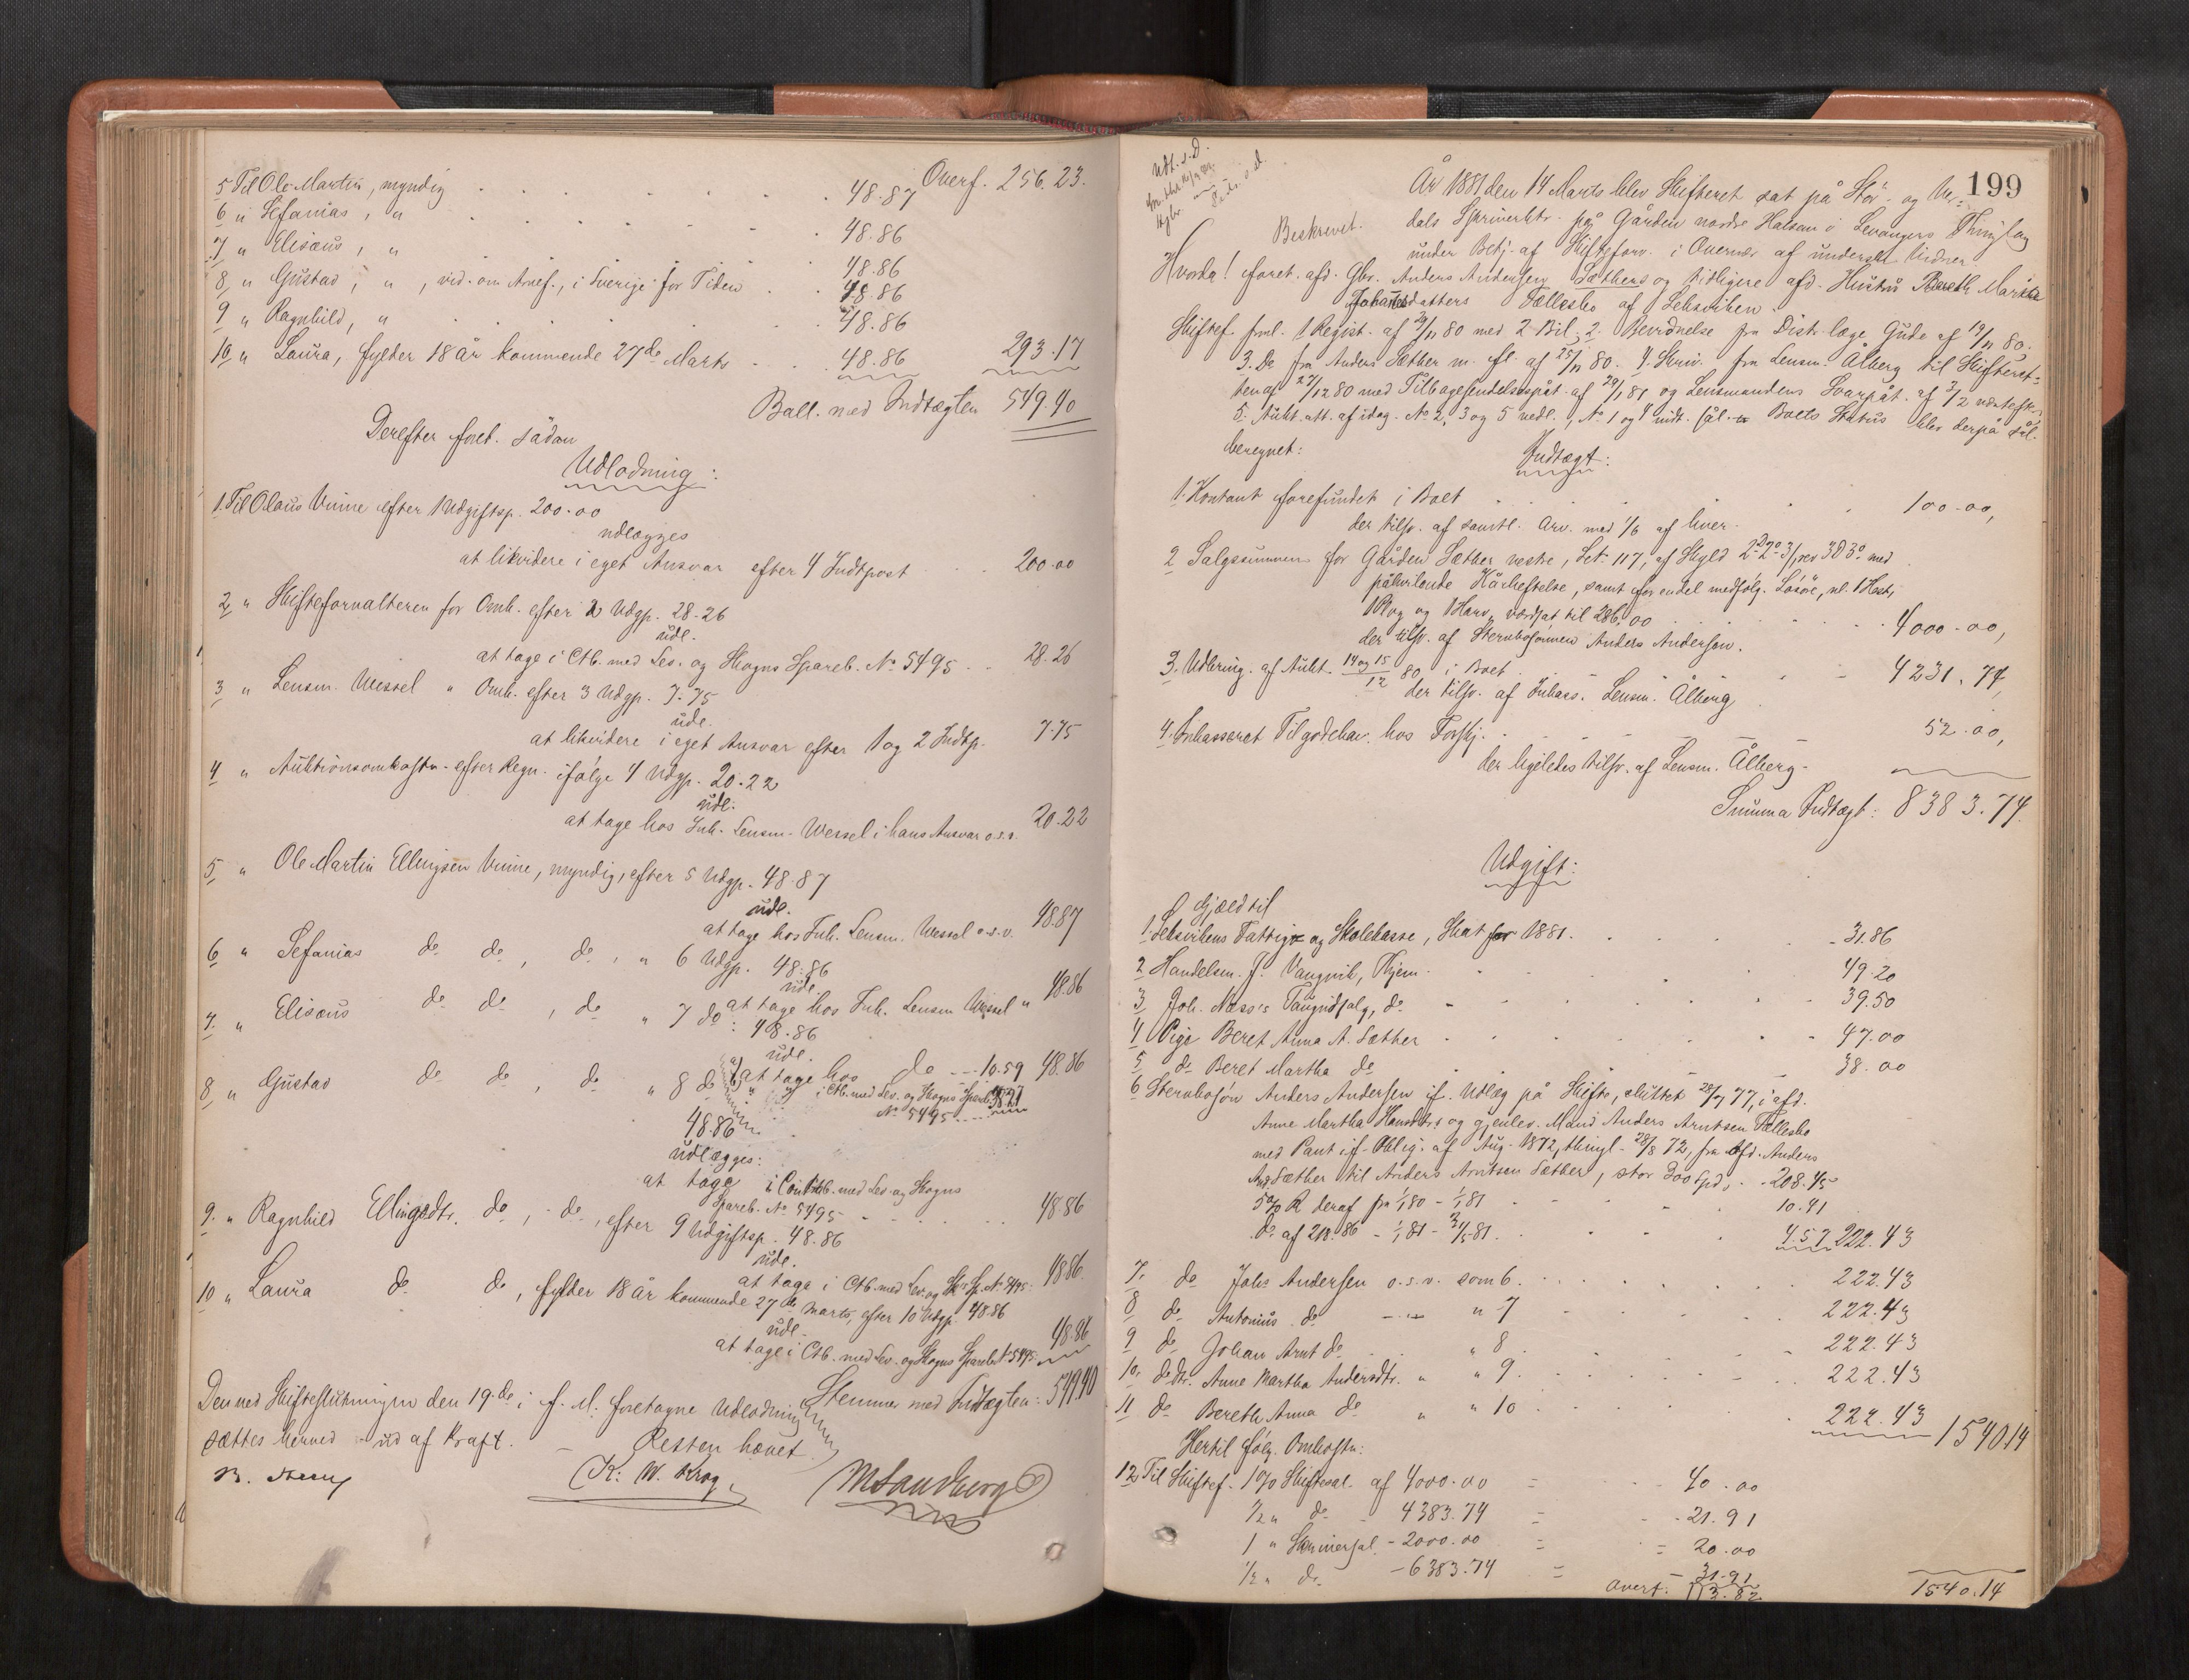 Overf. 256.23.
5 Til Ole Martin, myndig . . . 48.87
6 " Sefanias, " . . . 48.86
7 " Elisæus, " . . . 48.86
8 " Gustav, " , vid. om Arvef., i Sverige for Tiden . . 48.86
9 " Ragnhild, " . . . 48.86
10 " Laura, fylder 18 år kommende 27de Marts . . . 48.86 293.17
Ball. med Indtægten 549.40
Derefter foret. sådan
Udlodning:
1. Til Olaus Vinne efter 1 Udgiftsp. 200.00
udlægges
at likvidere i eget Ansvar efter 4 Indtpost . . . 200.00
2 " Skifteforvalteren for Omk. efter 2 Udgp. 28.26
udl.
at tage i Ctb. med Lev. og Skogns Spareb. No 5495 . . 28.26
3 " Lensm. Wessel " Omk. efter 3 Udgp. 7.75
udl.
at likvidere i eget Ansvar efter 1 og 2 Indtp. 7.75
4 " Auktionsomkostn. efter Regn. ifølge 4 Udgp. 20.22
udl.
at tage hos Ink. Lensm. Wessel i hans Ansvar o.s.v. 20.22
5 " Ole Martin Ellingsen Vinne, myndig, efter 5 Udgp. 48.87
udl.
at tage hos Ink. Lensm. Wessel o.s.v. 48.87
6 " Sefanias do do, do, " 6 Udgp. 48.86
udl.
at tage hos Ink. Lensm Wessel " 48.86
7. " Elisæus do do, do " 7 do: 48.86
udl.
at tage hos do . . . 10.59 48.86
8 " Gustav do do, do " 8 do
" og i Ctb. med Lev. og Skogns Spareb. 38.27
No 5495
48.86
udlægges:
at tage i Contrab. med Lev. og Skogns
Spareb. No 5495 . . . 48.86
9. " Ragnhild Ellingsdtr. do, do, efter 9 Udgiftsp. 48.86
udl.
at tage i Ctb. med Lev. og Sk's Sp. No 5495. 48.86
10 " Laura do do, fylder 18 år kommende 27de Marts, efter 10 Udgp. 48.86
udl.
at tage i Ctb. med Lev. og Skogns Spareb. No 5495. 48.86
Stemmer med Indtægten: 549.40
Den ved Skifteslutningen den 19.de i f. M. foretagne Udlodning
sættes herved ud af Kraft.
Retten hævet.
K: W. Krog
MSandberg
199
Udt. s. D.
År 1881 den 14 Marts blev Skifteret sat på Stör- og Ver-
Beskrevet. dals Skriverktr. på Gården nordre Halsan i Levangers Thinglag
under Betj. af Skifteforv. i Overvær af underskr. Vidner
Hvorda! foret. afd. Gbr. Anders Andersen Sæthers og tidligere afd. Hustru Bereth Marta
Johansdatters Fællesbo af Leksviken.
Skiftef. freml. 1 Regist. af 29/11 80 med 2 Bil., 2. Bevidnelse fra Distr. læge Gude af 19/11 80.
3. Do fra Anders Sæther m. fl. af 25/11 80. 4. Skriv. fra Lensm. Ålberg til Skifteret-
ten af 27/12 80 med Tilbagesendelsespåt. af 29/1 81 og Lensmandens Svarpåt. af 3/2 næstefter,
5. Aukt. att. af idag. No 2, 3 og 5 vedl., No 1 og 4 indt. sål. Boets Status blev derpå sål.
beregnet:
Indtægt:
1. Kontant forefundet i Boet . . . 100.00,
der tilsv. af samtl. Arv. med 1/6 af hver.
2 Salgssummen for Gården Sæther vestre, Let. 117, af Skyld 2 D 2 o 3/, rev 3 D 3 o med
påhvilende Kårheftelse, samt for endel medfølg. Løsøre, nl. 1 Hest,
1 Plog og 1 Harv, værdsat til 286.00 . . . 4000.00,
der tilsv. af Sterbosönnen Anders Andersen.
3. Udbring. af Aukt. 14 og 15/12 80 i Boet . . . 4231.74,
der tilsv. af Inkass. Lensm. Ålberg
4. Inkasseret Tilgodehav. hos Forskj. . . . 52.00,
der ligeledes tilsv. af Lensm. Ålberg.
Summa Indtægt: 8383.74.
Udgift:
Gjæld til
1. Leksvikens Fattig- og Skolekasse, Skat for 1881. . . . 31.86
2 Handelsm. J. Vangvik, Hjem. . . . 49.20
3 Joh. Næss's Tangvidsalg, do . . . 39.50
4 Pige Beret Anna A. Sæther . . . 47.00
5 do Beret Martha do . . . 38.00
6 Sterbosön Anders Andersen if. Udlæg på Skifte, sluttet 28/7 77, i afd.
Anne Martha Hansdtrs og gjenlev. Mand Anders Arntsen Fællesbo
med Pant if. Oblig. af Aug. 1872, thingl. 28/8 72, fra Afd. Anders
Ands. Sæther til Anders Arntsen Sæther, stor 300 Spd. . . 208.45
5 % R deraf fra 1/1 80 - 1/1 81 . . . 10.41
do af 218.86 - 1/1 81 - 31/5 81 . . . 4.57 222.43
7. do Johs Andersen o.s.v. som 6. . . . 222.43
8 do Antonius do " 7 . . . 222.43
9 do Johan Arnt do " 8 . . . 222.43
10. do dtr. Anne Martha Andersdtr. " " 9 . . . 222.43
11 do Bereth Anna do " " 10 . . . 222.43 1540.14
Hertil følg. Omkostn:
12 Til Skiftef. 1 % Skiftesal. af 4000.00 = . . 40.00
1/2 " do - 4383.74 = . . 21.91
1 " Skriversal. - 2000.00 = . . 20.00
1/2 " do - 6383.74 = 31.91
Overf. 113.82 1540.14